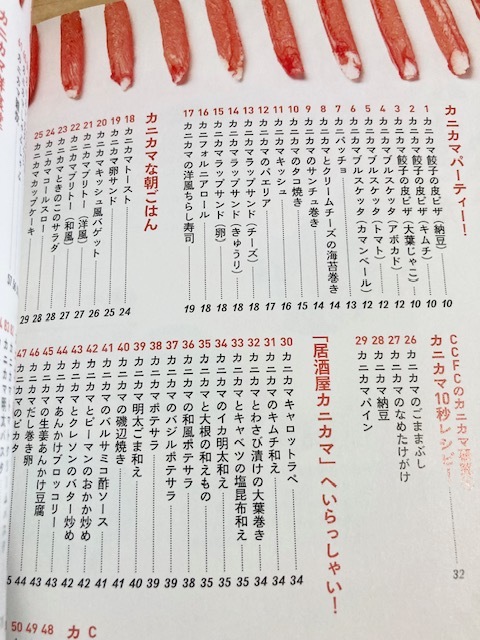 カニカマパーティー!
1 カニカマ餃子の皮ピザ（納豆） 10
2 カニカマ餃子の皮ピザ（キムチ） 10
3 カニカマ餃子の皮ピザ（大葉じゃこ） 10
4 カニカマブルスケッタ（アボカド） 12
5 カニカマブルスケッタ（トマト） 12
6 カニカマブルスケッタ（カマンベール） 12
7 カパッチョ 13
8 カニカマとクリームチーズの海苔巻き 14
9 カニカマのサンチュ巻き 14
10 カニカマのタコ焼き 15
11 カニカマキッシュ 16
12 カニカマのパエリア 17
13 カニカマラップサンド（チーズ） 18
14 カニカマラップサンド（きゅうり） 18
15 カニカマラップサンド（卵） 18
16 カニフォルニアロール 18
17 カニカマの洋風ちらし寿司 19
カニカマな朝ごはん
18 カニカマトースト 24
19 カニカマ卵サンド 25
20 カニカマキッシュ風バゲット 26
21 カニカマブリトー（洋風） 27
22 カニカマブリトー（和風） 27
23 カニカマときのこのサラダ 28
24 カニカマコールスロー 28
25 カニカマカップケーキ 29
CCFCのカニカマ
カニカマ10秒レシピ! 32
26 カニカマのごままぶし
27 カニカマのなめたけがけ
28 カニカマ納豆
29 カニカマパイン
「居酒屋カニカマ」へいらっしゃい!
30 カニカマキャロットラペ 34
31 カニカマのキムチ和え 34
32 カニカマとわさび漬けの大葉巻き 34
33 カニカマとキャベツの塩昆布和え 34
34 カニカマのイカ明太和え 35
35 カニカマと大根の和えもの 35
36 カニカマの和風ポテサラ
37 カニカマのバジルポテサラ
38 カニカマポテサラ 39
39 カニカマ明太ごま和え 40
40 カニカマの磯辺焼き 41
41 カニカマのバルサミコ酢ソース 41
42 カニカマとピーマンのおかか炒め 42
43 カニカマとクレソンのバター炒め 42
44 カニカマあんかけブロッコリー 43
45 カニカマの生姜あんかけ豆腐 43
46 カニカマだし巻き卵 44
47 カニカマのピカタ
48
49
50